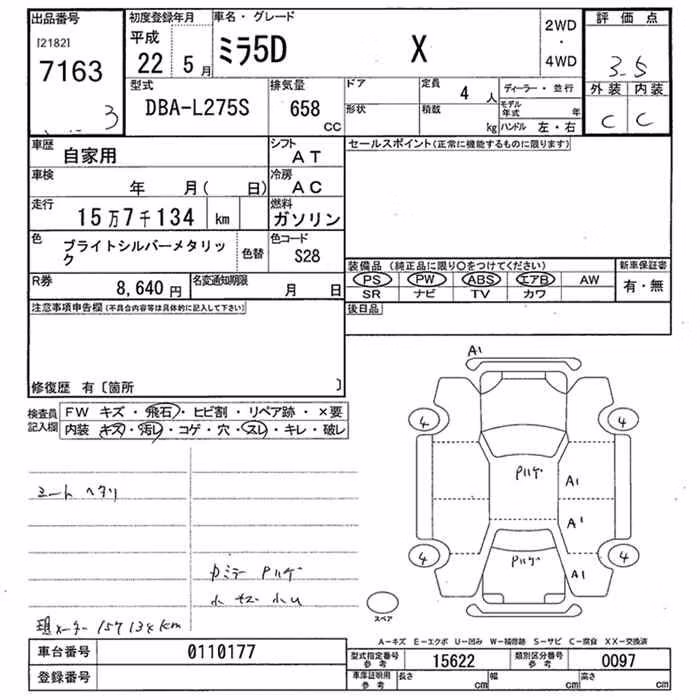 出品番号 初度登録年月 車名・グレード 2WD・4WD 評価点
[2182] 平成
7163 22 5月 ミラ5D X 3.5
3
型式 排気量 ドア 定員 4人 ディーラー・並行 外装 内装
DBA-L275S 658 CC 形状 積載 kg モデル年式 年 C C
ハンドル 左・右
車歴 自家用 シフト AT セールスポイント(正常に機能するものに限ります)
車検 年 月( 日) 冷房 AC
走行 15万7千134 km 燃料 ガソリン
色 ブライトシルバーメタリック 色替 色コード S28
装備品 (純正品に限り〇をつけてください) 新車保証書
R券 8,640円 名変通知期限 月 日 PS PW ABS エアB AW 有・無
SR ナビ TV カワ
注意事項申告欄(不具合内容等は具体的に記入して下さい) 後日品
修復歴 有〔箇所 〕
検査員記入欄 FW キズ・飛石・ヒビ割・リペア跡・×要
内装 キズ・汚レ・コゲ・穴・スレ・キレ・破レ
A1
4 4
Pハゲ A1
A1
4 Pハゲ A1 4
シートヘタリ
Pハゲ
小キズ 小U
現メーター 157134km
スペア
A-キズ E-エクボ U-凹み W-補修跡 S-サビ C-腐食 XX-交換済
車台番号 0110177 型式指定番号 参考 15622 類別区分番号 参考 0097
登録番号 車庫証明用 参考 長さ cm 幅 cm 高さ cm